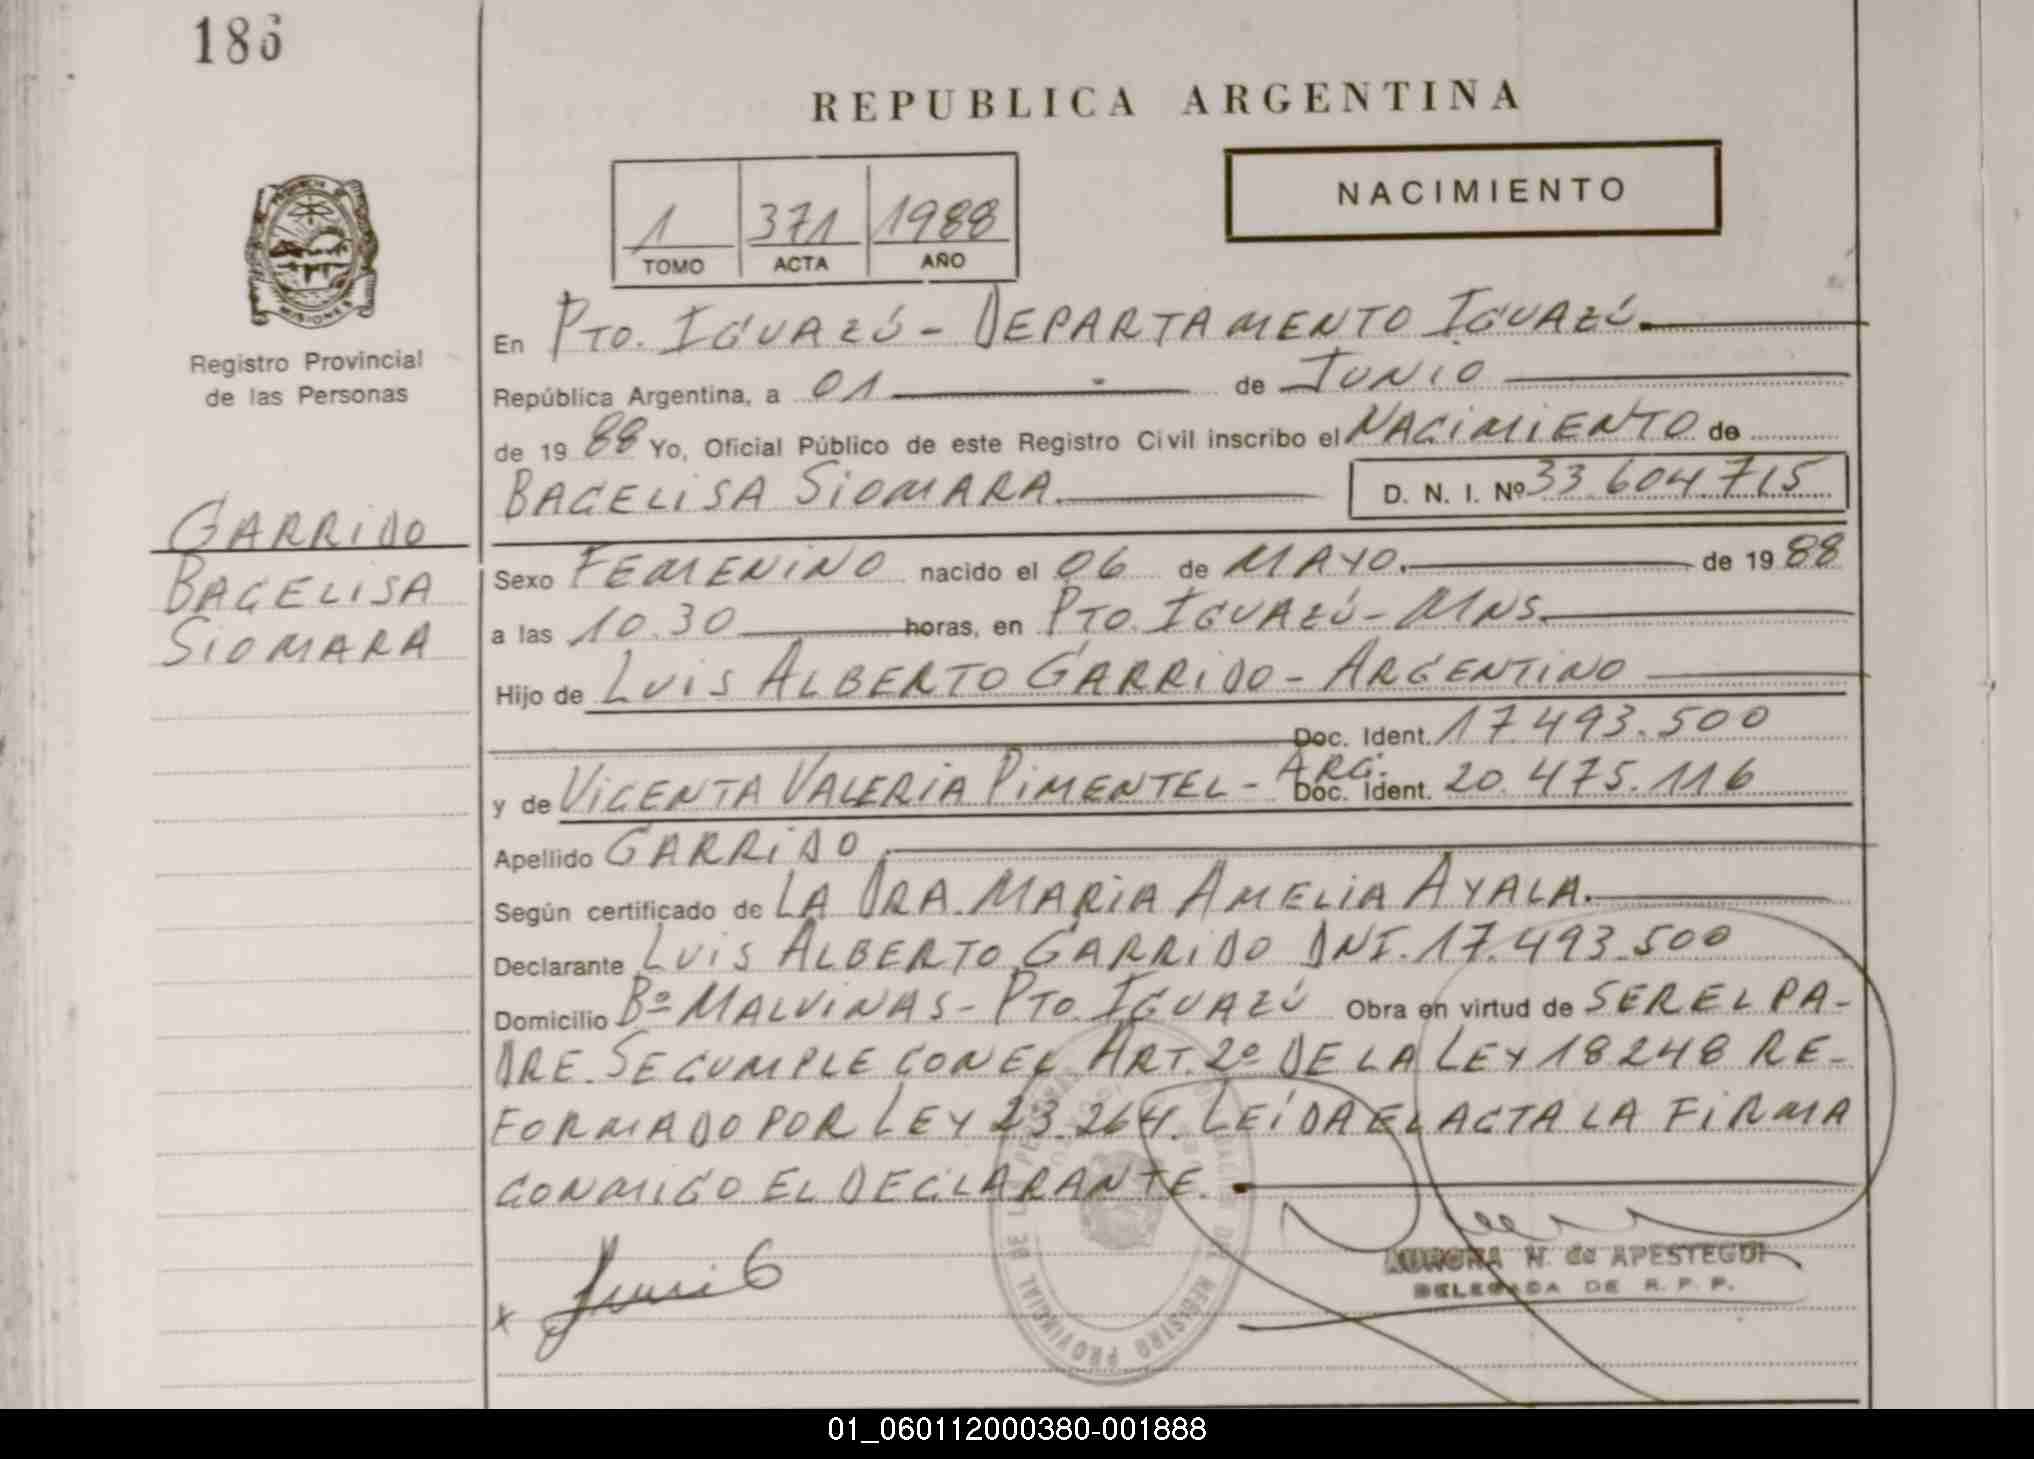 186
REPUBLICA ARGENTINA
NACIMIENTO
1 371 1988
TOMO ACTA AÑO
PROVINCIA DE
MISIONES
Registro Provincial
de las Personas
GARRIDO
BAGELISA
SIOMARA
En PTO. IGUAZÚ - DEPARTAMENTO IGUAZÚ.
República Argentina, a 01 de JUNIO
de 19 88 Yo, Oficial Público de este Registro Civil inscribo el NACIMIENTO de
BAGELISA SIOMARA. D. N. I. Nº 33.604.715
Sexo FEMENINO nacido el 06 de MAYO. de 19 88
a las 10.30 horas, en PTO. IGUAZÚ - MNS.
Hijo de LUIS ALBERTO GARRIDO - ARGENTINO
Doc. Ident. 17.493.500
y de VICENTA VALERIA PIMENTEL - ARG. Doc. Ident. 20.475.116
Apellido GARRIDO
Según certificado de LA DRA. MARIA AMELIA AYALA.
Declarante LUIS ALBERTO GARRIDO DNI. 17.493.500
Domicilio Bº MALVINAS - PTO. IGUAZÚ Obra en virtud de SER EL PA-
DRE. SE CUMPLE CON EL ART. 2º DE LA LEY 18248 RE-
FORMADO POR LEY 23.264. LEÍDA EL ACTA LA FIRMA
CONMIGO EL DECLARANTE.
REGISTRO PROVINCIAL DE LAS PERSONAS
N. de APESTEGUI
DELEGADA DE R. P. P.
X
01_060112000380-001888